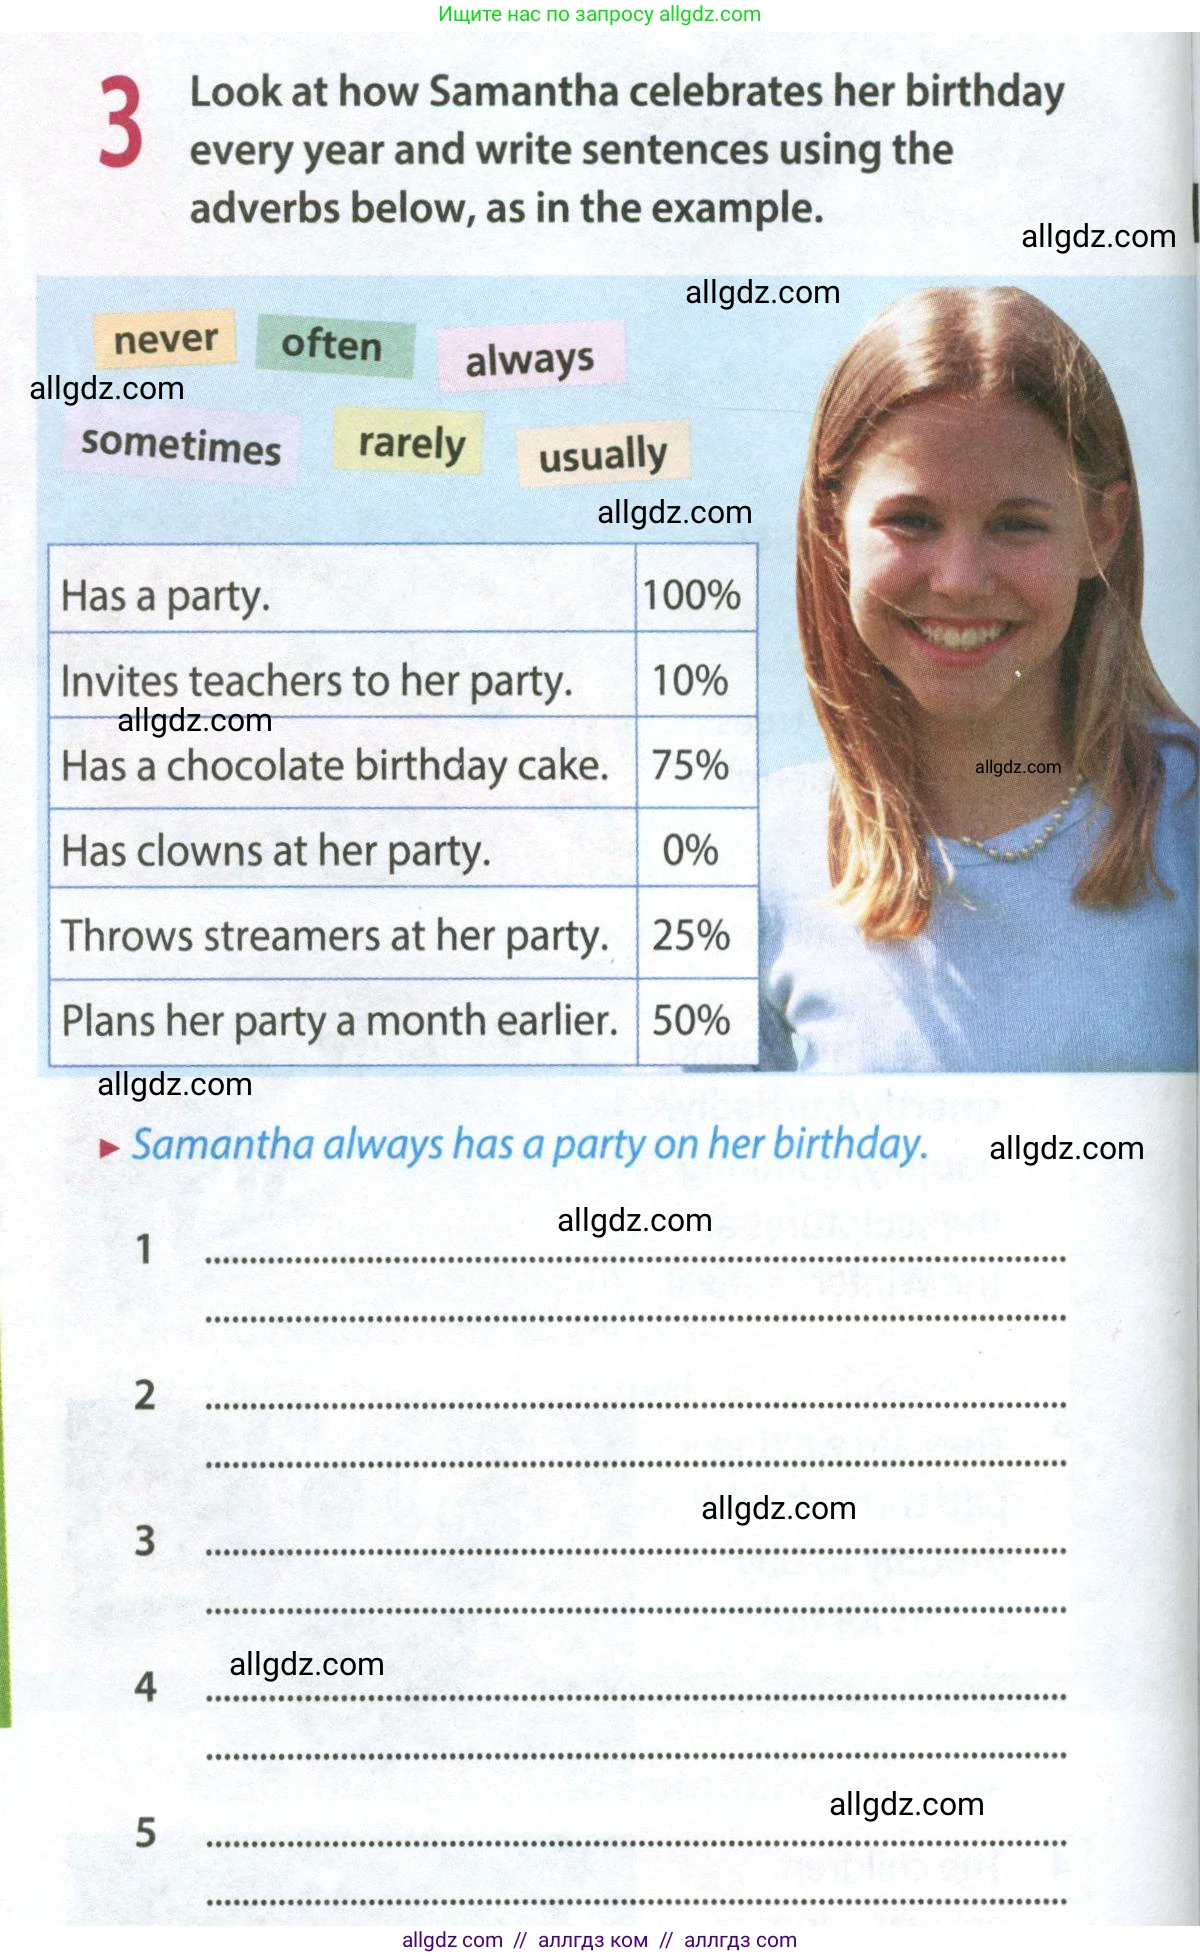 Ищите нас по запросу allgdz.com
3
Look at how Samantha celebrates her birthday
every year and write sentences using the
adverbs below, as in the example.
allgdz.com
allgdz.com
never often always
allgdz.com
sometimes rarely usually
allgdz.com
Has a party. 100%
Invites teachers to her party. 10%
allgdz.com
Has a chocolate birthday cake. 75%
allgdz.com
Has clowns at her party. 0%
Throws streamers at her party. 25%
Plans her party a month earlier. 50%
allgdz.com
Samantha always has a party on her birthday.
allgdz.com
allgdz.com
1
2
allgdz.com
3
allgdz.com
4
allgdz.com
5
allgdz com // аллгдз ком // аллгдз com